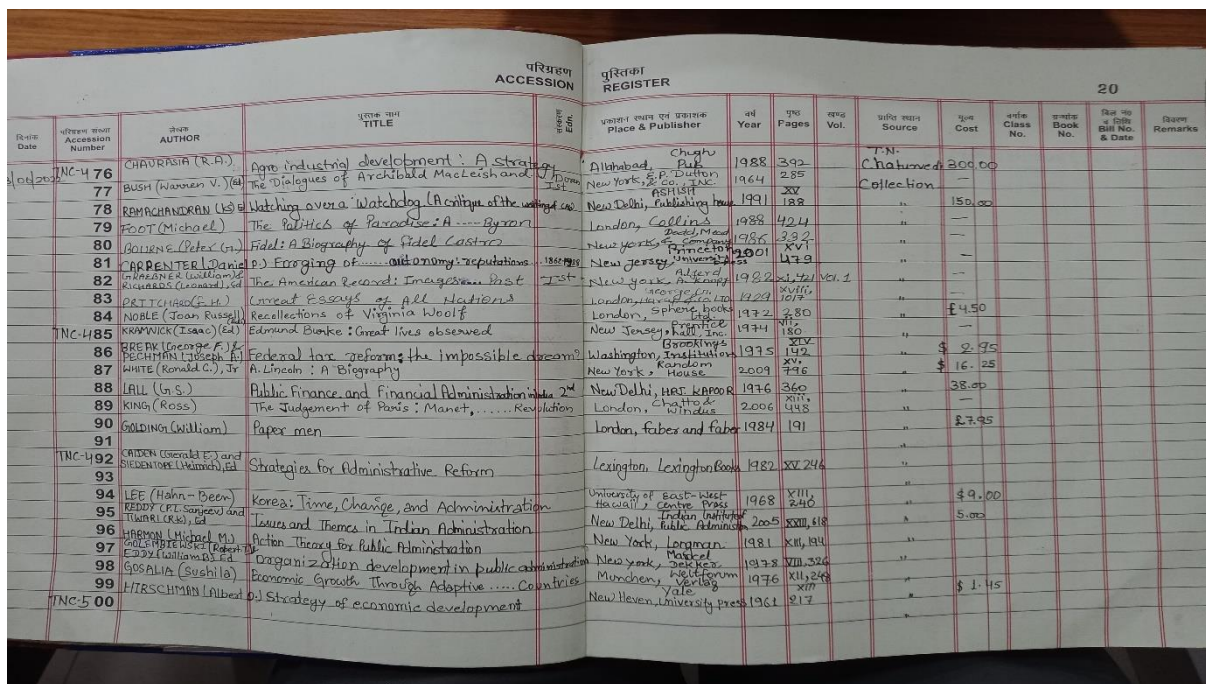 परिग्रहण पुस्तिका
ACCESSION REGISTER
20
दिनांक Date | परिग्रहण संख्या Accession Number | लेखक AUTHOR | पुस्तक नाम TITLE | संस्करण Edn. | प्रकाशन स्थान एवं प्रकाशक Place & Publisher | वर्ष Year | पृष्ठ Pages | खण्ड Vol. | प्राप्ति स्थान Source | मूल्य Cost | वर्गांक Class No. | ग्रन्थांक Book No. | बिल नं० व तिथि Bill No. & Date | विवरण Remarks
TNC-4 76 CHAURASIA (R.A.) Agro industrial development : A strategy Allahabad, Chugh Pub 1988 392 T.N. Chaturvedi 300.00
77 BUSH (Warren V.) (Ed) The Dialogues of Archibald MacLeish and Ist New York, E.P. Dutton & Co., INC. 1964 285 Collection —
78 RAMACHANDRAN (KS) Watching over a Watchdog (A critique of the working of New Delhi, ASHISH Publishing house 1991 XV 188 " 150.00
79 FOOT (Michael) The Politics of Paradise : A ..... Byron London, Collins 1988 424 " —
80 BOURNE (Peter G.) Fidel : A Biography of Fidel Castro New york, Dodd, Mead & Company 1986 332 " —
81 CARPENTER (Daniel P.) Forging of ...... autonomy : reputations New Jersey, Princeton University 2001 XVI 479 " —
82 GRAEBNER (William) & RICHARDS (Leonard), Ed The American Record : Images ..... Past Ist New York, Alferd A. Knopf 1982 xi, 421 Vol. 1 " —
83 PRITCHARD (F.H.) Great Essays of All Nations London, 1929 xviii, 1017 " —
84 NOBLE (Joan Russell) (Ed) Recollections of Virginia Woolf London, Sphere books Ltd. 1972 280 " £4.50
TNC-4 85 KRAMNICK (Isaac) (Ed) Edmund Burke : Great lives observed New Jersey, Prentice hall, Inc. 1974 VII, 180 " —
86 BREAK (George F.) & PECHMAN (Joseph A.) Federal tax reform : the impossible dream? Washington, Brookings Institution 1975 XIV 142 " $ 2.95
87 WHITE (Ronald C.), Jr A. Lincoln : A Biography New York, Random House 2009 XV, 796 " $ 16.25
88 LALL (G.S.) Public Finance and Financial Administration in India 2nd New Delhi, HRJ KAPOOR 1976 360 " 38.00
89 KING (Ross) The Judgement of Paris : Manet, ...... Revolution London, Chatto & Windus 2006 XIII, 448 " —
90 GOLDING (William) Paper men London, faber and faber 1984 191 " £7.95
91
TNC-4 92 CAIDEN (Gerald E.) and SIEDENTOPF (Heinrich), Ed Strategies for Administrative Reform Lexington, Lexington Books 1982 XV 246 "
93
94 LEE (Hahn-Been) Korea : Time, Change, and Administration University of Hawaii, East-West Centre Press 1968 XIII, 240 " $9.00
95 REDDY (P.L. Sanjeev) and TIWARI (R.K), Ed Issues and Themes in Indian Administration New Delhi, Indian Institute of Public Adminis 2005 XXIII, 618 " 5.00
96 HARMON (Michael M.) Action Theory for Public Administration New York, Longman 1981 XIII, 194 "
97 GOLEMBIEWSKI (Robert T.) & EDDY (William B.) Ed Organization development in public administration New york, Marcel Dekker 1978 VIII, 326 "
98 GOSALIA (Sushila) Economic Growth Through Adaptive ..... Countries Munchen, Weltforum Verlag 1976 XII, 248 "
99 HIRSCHMAN (Albert O.) Strategy of economic development New Heven, Yale University press 1961 XIII 217 " $ 1.45
TNC-5 00 "